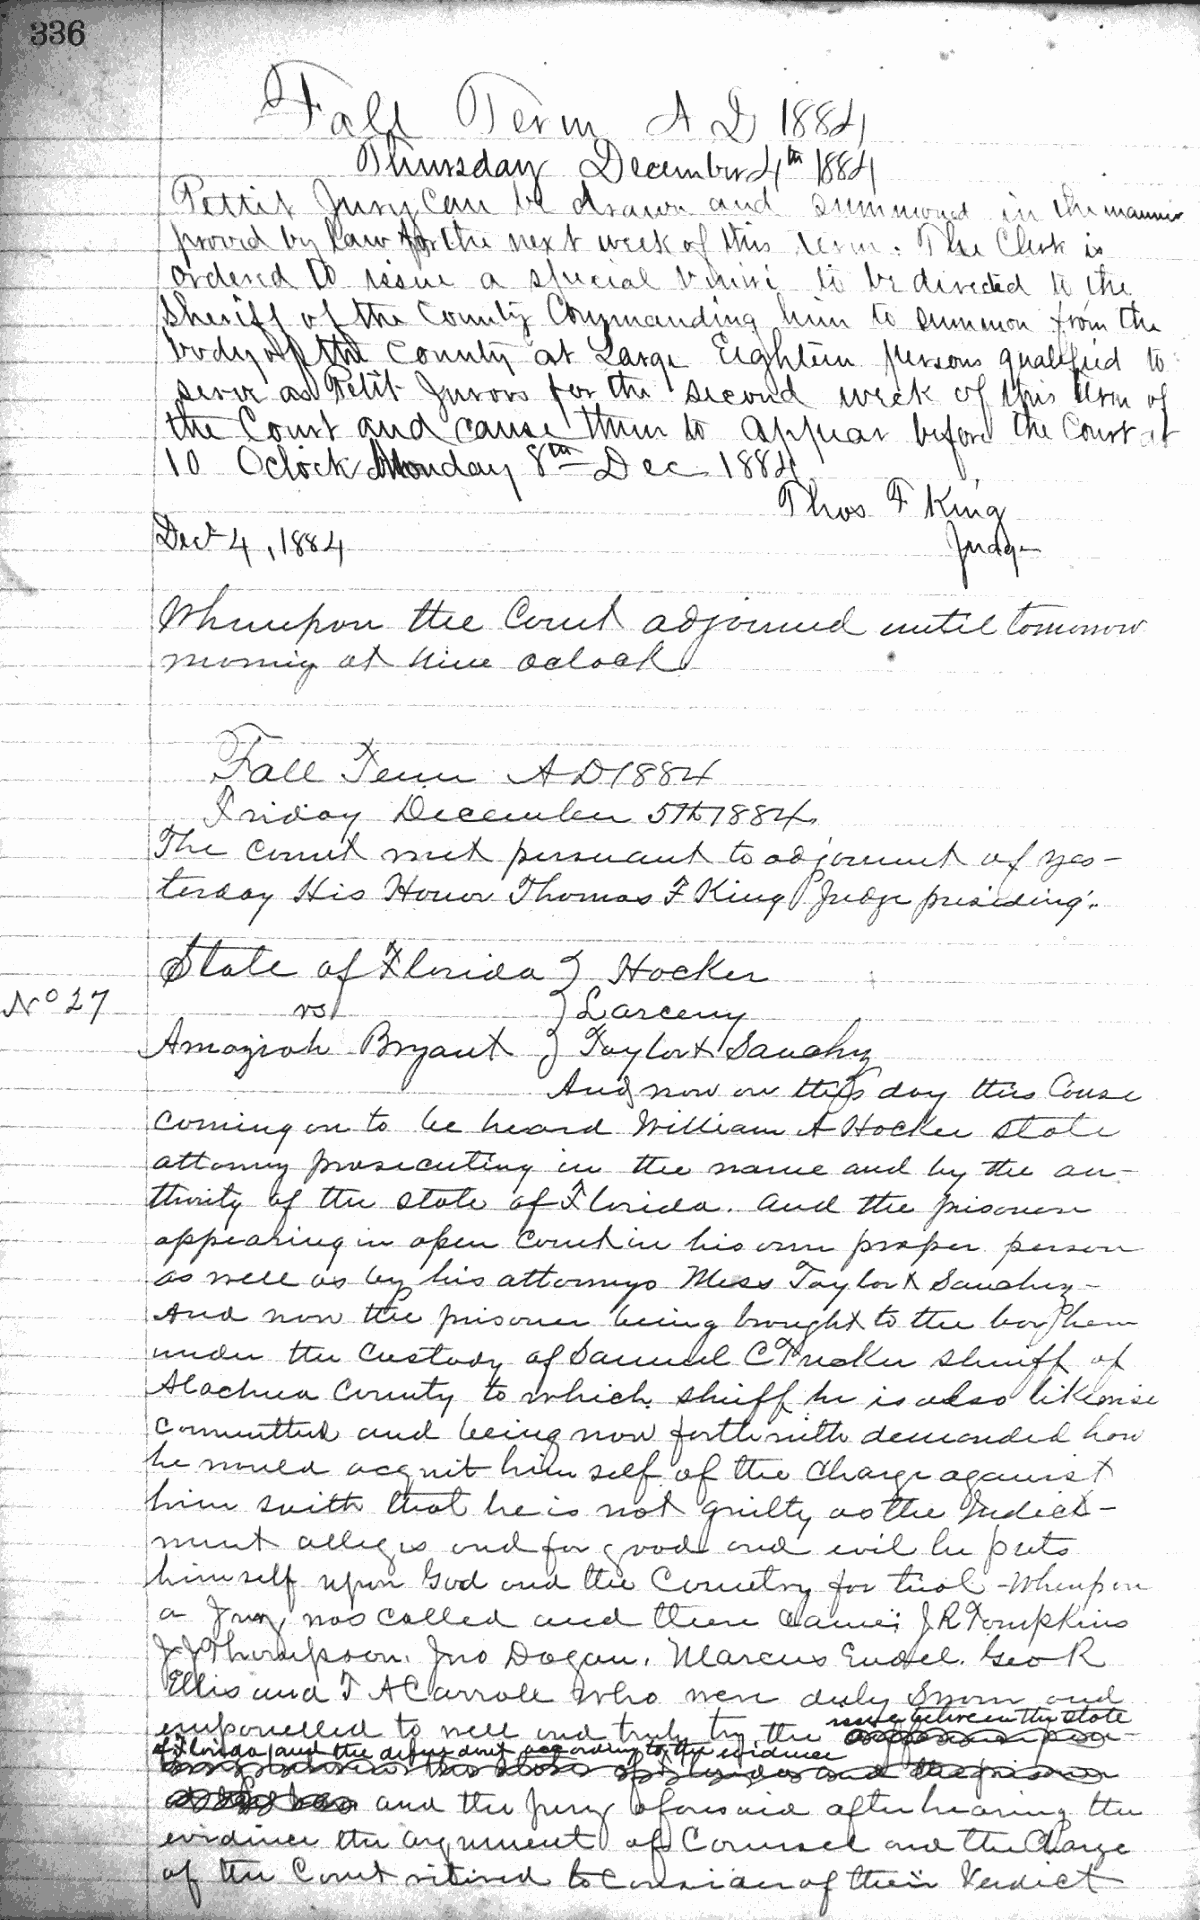 336
Fall Term A D 1884
Thursday December 4th 1884
Pettit Jury can be drawn and summoned in the manner
provid by law for the next week of this term. The Clerk is
ordered to issue a special veniri to be directed to the
Sheriff of the County Commanding him to summon from the
body of the County at Large Eighteen persons qualified to
serve as Petit Jurors for the second week of this term of
the Court and cause them to appear before the Court at
10 Oclock Monday 8th Dec 1884
Thos F King
Dect 4, 1884
Judge
Whereupon the Court adjourned until tomorrow
morning at nine oclock
Fall Term A D 1884
Friday December 5th 1884
The Court met persuant to adjournment of yes-
terday His Honor Thomas F King Judge presiding.
State of Florida } Hocker
No 27 vs } Larceny
Amaziah Bryant } Taylor & Sanchez
And now on this day this Cause
coming on to be heard William A Hocker state
attorney prosecuting in the name and by the au-
thority of the state of Florida. and the prisoner
appearing in open Court in his own proper person
as well as by his attorneys Mess Taylor & Sanchez-
And now the prisoner being brought to the bar here
under the custody of Samuel C Tucker sheriff of
Alachua County to which sheriff he is also likewise
committed and being now forthwith demanded how
he would acquit him self of the Charge against
him saith that he is not guilty as the Indict-
ment alleges and for good and evil he puts
himself upon God and the Country for trial - Whereupon
a Jury was called and there came; J R Tompkins
J J Thompson, Jno Dogan, Marcus Endel. Geo R
Ellis and T A Carroll who were duly Sworn and
empanelled to well and truly try the issue between the state
of Florida and the defendant according to the evidence
and the Jury aforesaid after hearing the
evidence the argument of Counsel and the Charge
of the Court retired to Consider of their Verdict